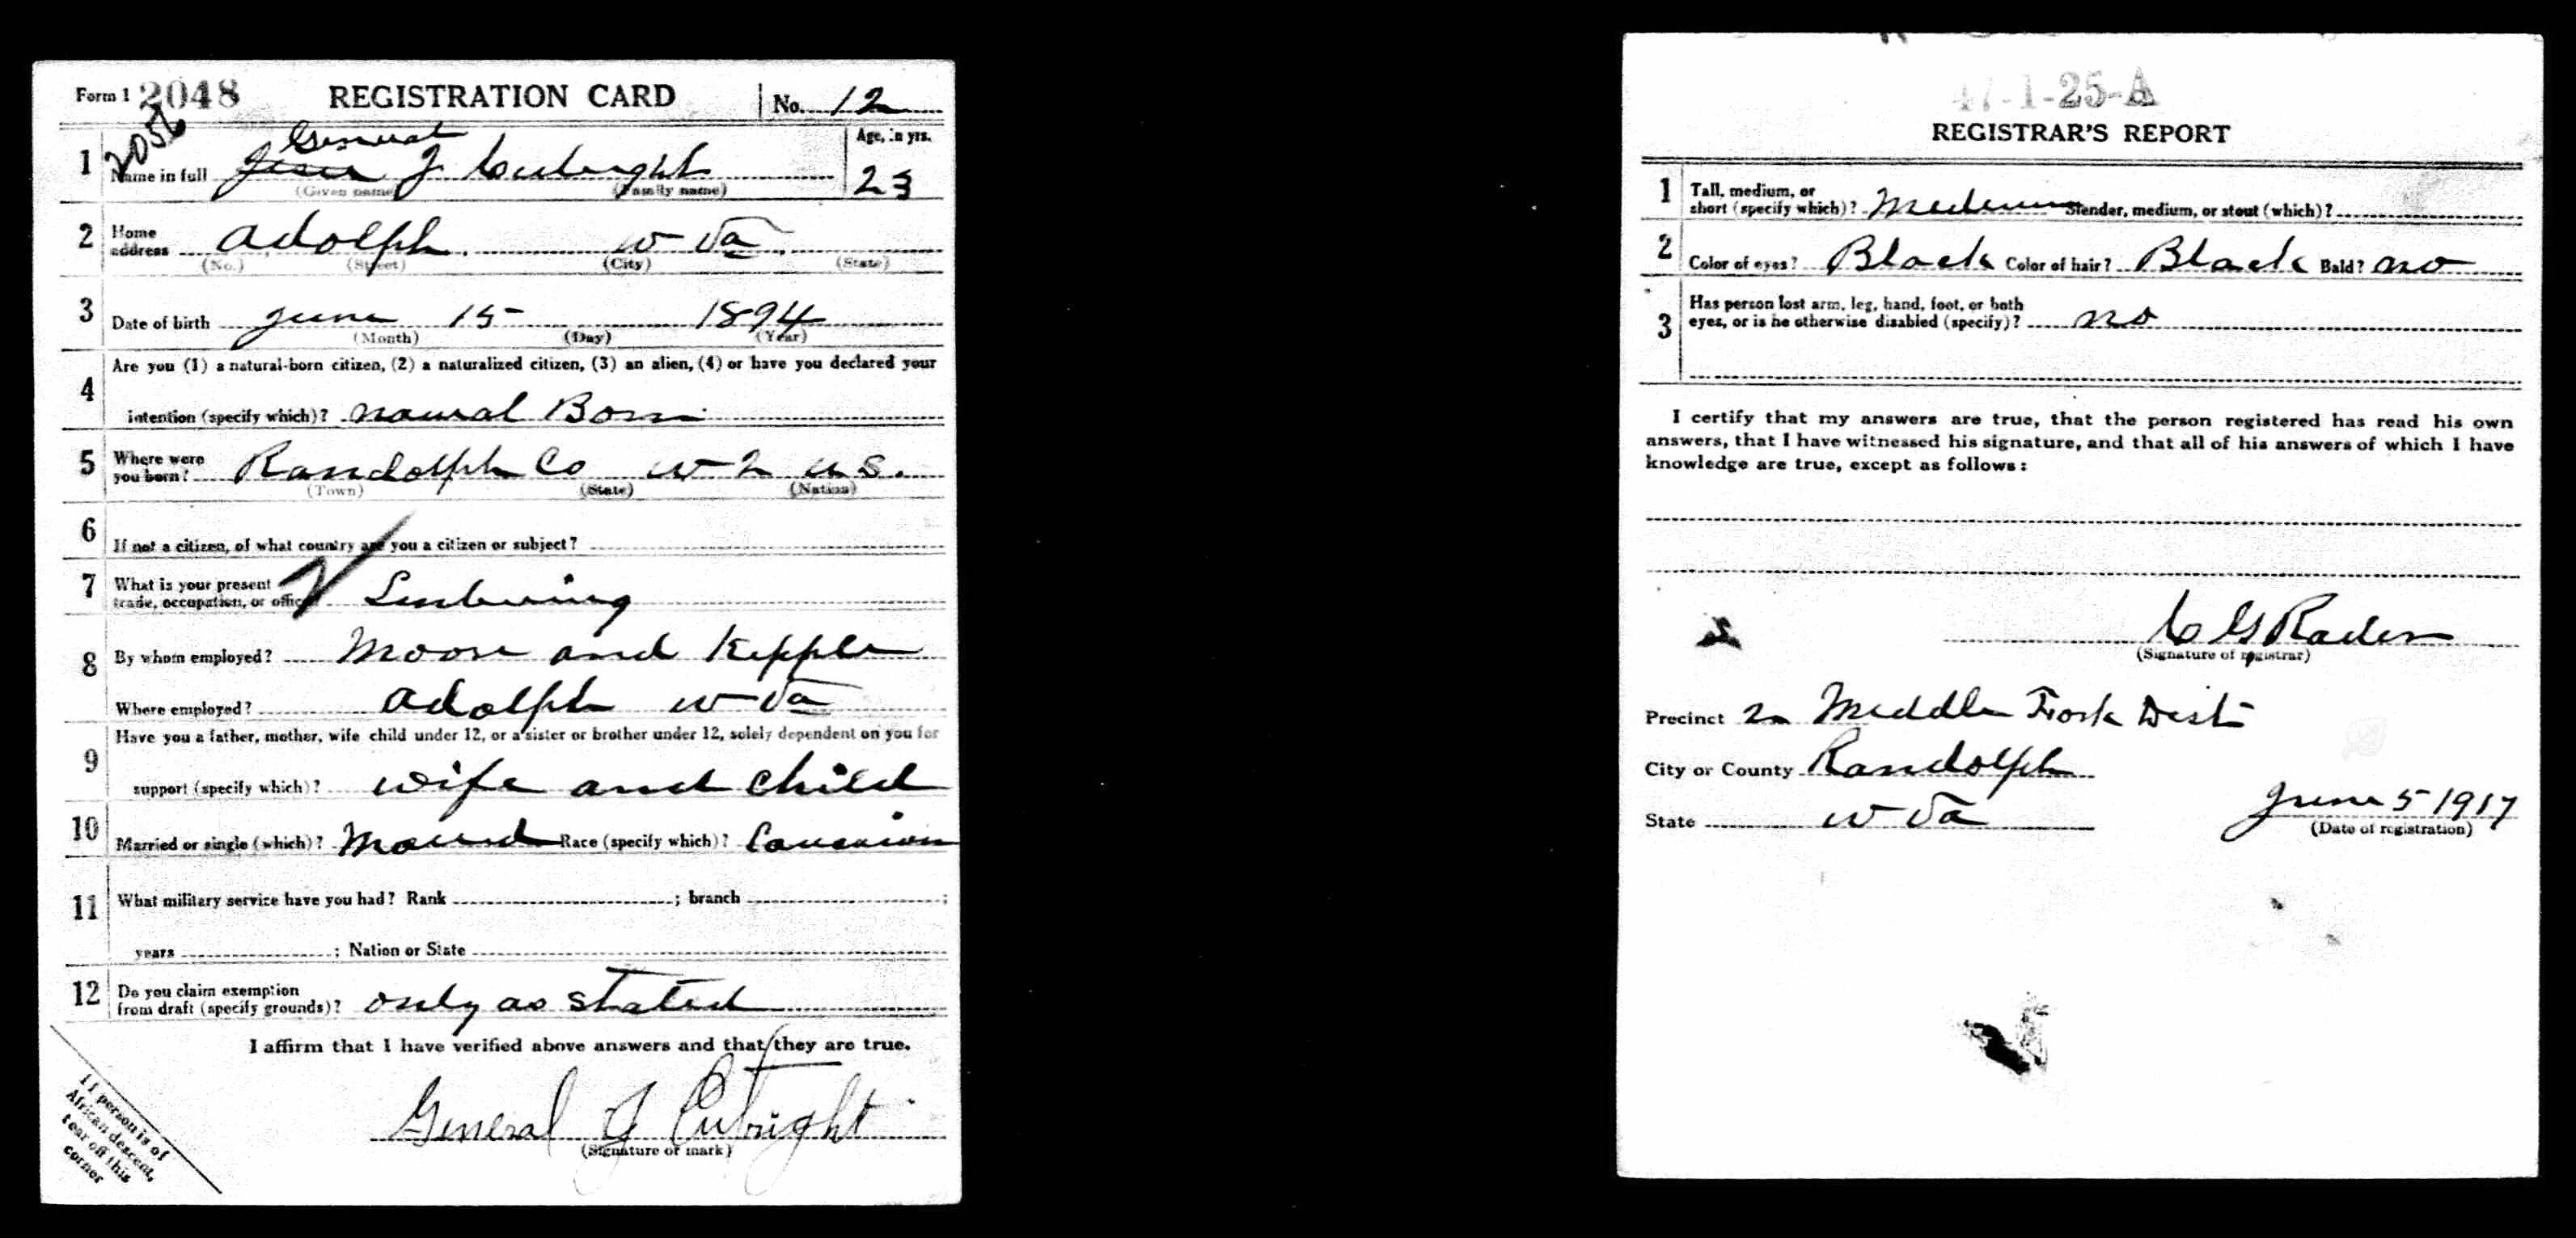 Form 1 2048 REGISTRATION CARD No. 12
2056
General
1 Name in full Jesse J Cutright Age, in yrs. 23
(Given name) (Family name)
2 Home address Adolph, W Va,
(No.) (Street) (City) (State)
3 Date of birth June 15 1894
(Month) (Day) (Year)
4 Are you (1) a natural-born citizen, (2) a naturalized citizen, (3) an alien, (4) or have you declared your
intention (specify which)? naural Born
5 Where were you born? Randolph Co W U S.
(Town) (State) (Nation)
6 If not a citizen, of what country are you a citizen or subject?
7 What is your present
trade, occupation, or office?
8 By whom employed? Moore and Kepple
Where employed? Adolph W Va
9 Have you a father, mother, wife child under 12, or a sister or brother under 12, solely dependent on you for
support (specify which)? wife and child
10 Married or single (which)? Race (specify which)?
11 What military service have you had? Rank ; branch ;
years ; Nation or State
12 Do you claim exemption
from draft (specify grounds)? only as stated
I affirm that I have verified above answers and that they are true.
General J Cutright
(Signature or mark)
If person is of
African descent,
tear off this
corner
47-1-25-A
REGISTRAR'S REPORT
1 Tall, medium, or
short (specify which)? Medium Slender, medium, or stout (which)?
2 Color of eyes? Black Color of hair? Black Bald? no
3 Has person lost arm, leg, hand, foot, or both
eyes, or is he otherwise disabled (specify)? no
I certify that my answers are true, that the person registered has read his own
answers, that I have witnessed his signature, and that all of his answers of which I have
knowledge are true, except as follows:
C G Rader
(Signature of registrar)
Precinct 2n Middle Fork Dist
City or County Randolph
State W Va June 5 1917
(Date of registration)